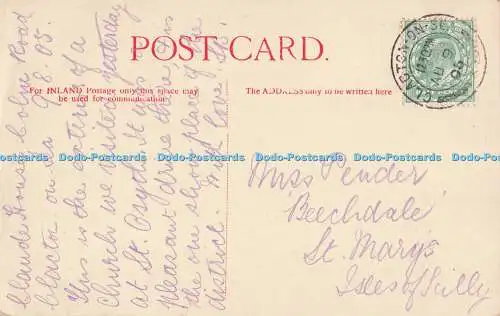 POST CARD.
For INLAND Postage only this space may
be used for communication
The ADDRESS only to be written here
CLACTON-ON-SEA
Claude House Colne Road
Clacton on Sea 9.8.05.
This is the exterior of a
Church we visited yesterday
at St. Osyth. It is a
pleasant drive there & is
the show place of the
district. With love.
Miss Pender
"Beechdale"
St. Mary's
Isles of Scilly
Dodo-Postcards Dodo-Postcards Dodo-Postcards Dodo-Postcards Dodo-Postcards Dodo-Postcards